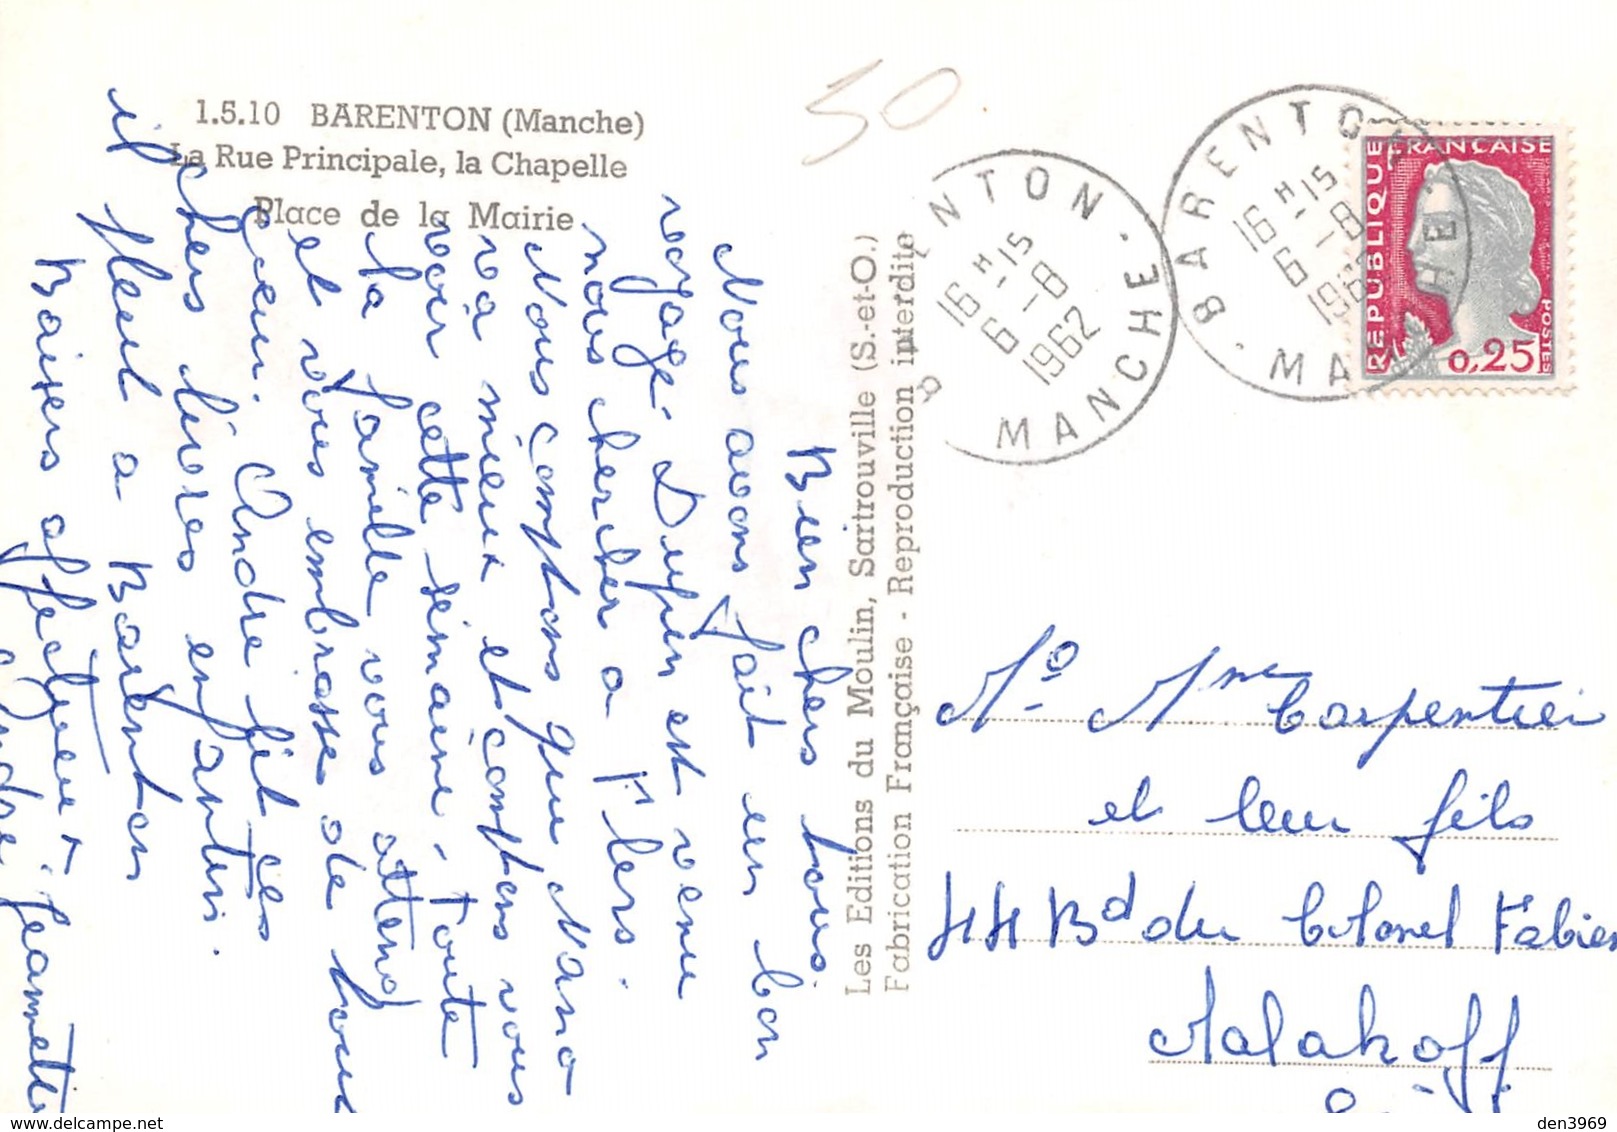 1.5.10 BARENTON (Manche)
La Rue Principale, la Chapelle
Place de la Mairie
50
Bien chers tous.
Nous avons fait un bon
voyage. Dupin est venu
nous chercher a Flers.
Nous comptons que Nano
va mieux et comptons vous
voir cette semaine, toute
la famille vous attend
et vous embrasse de tout
coeur. André fit ces
chers livres enfantin.
il pleut a Barenton
Baisers affectueux. Jeannette
André
Les Editions du Moulin, Sartrouville (S.-et-O.)
Fabrication Française - Reproduction interdite
BARENTON
16 H -15
6 -8
1962
MANCHE
BARENTON
16 H -15
6 -8
1962
MANCHE
REPUBLIQUE FRANÇAISE
POSTES
0,25
Mr Mme Carpentier
et leur fils
44 Bd du Colonel Fabien
Malakoff
den3969